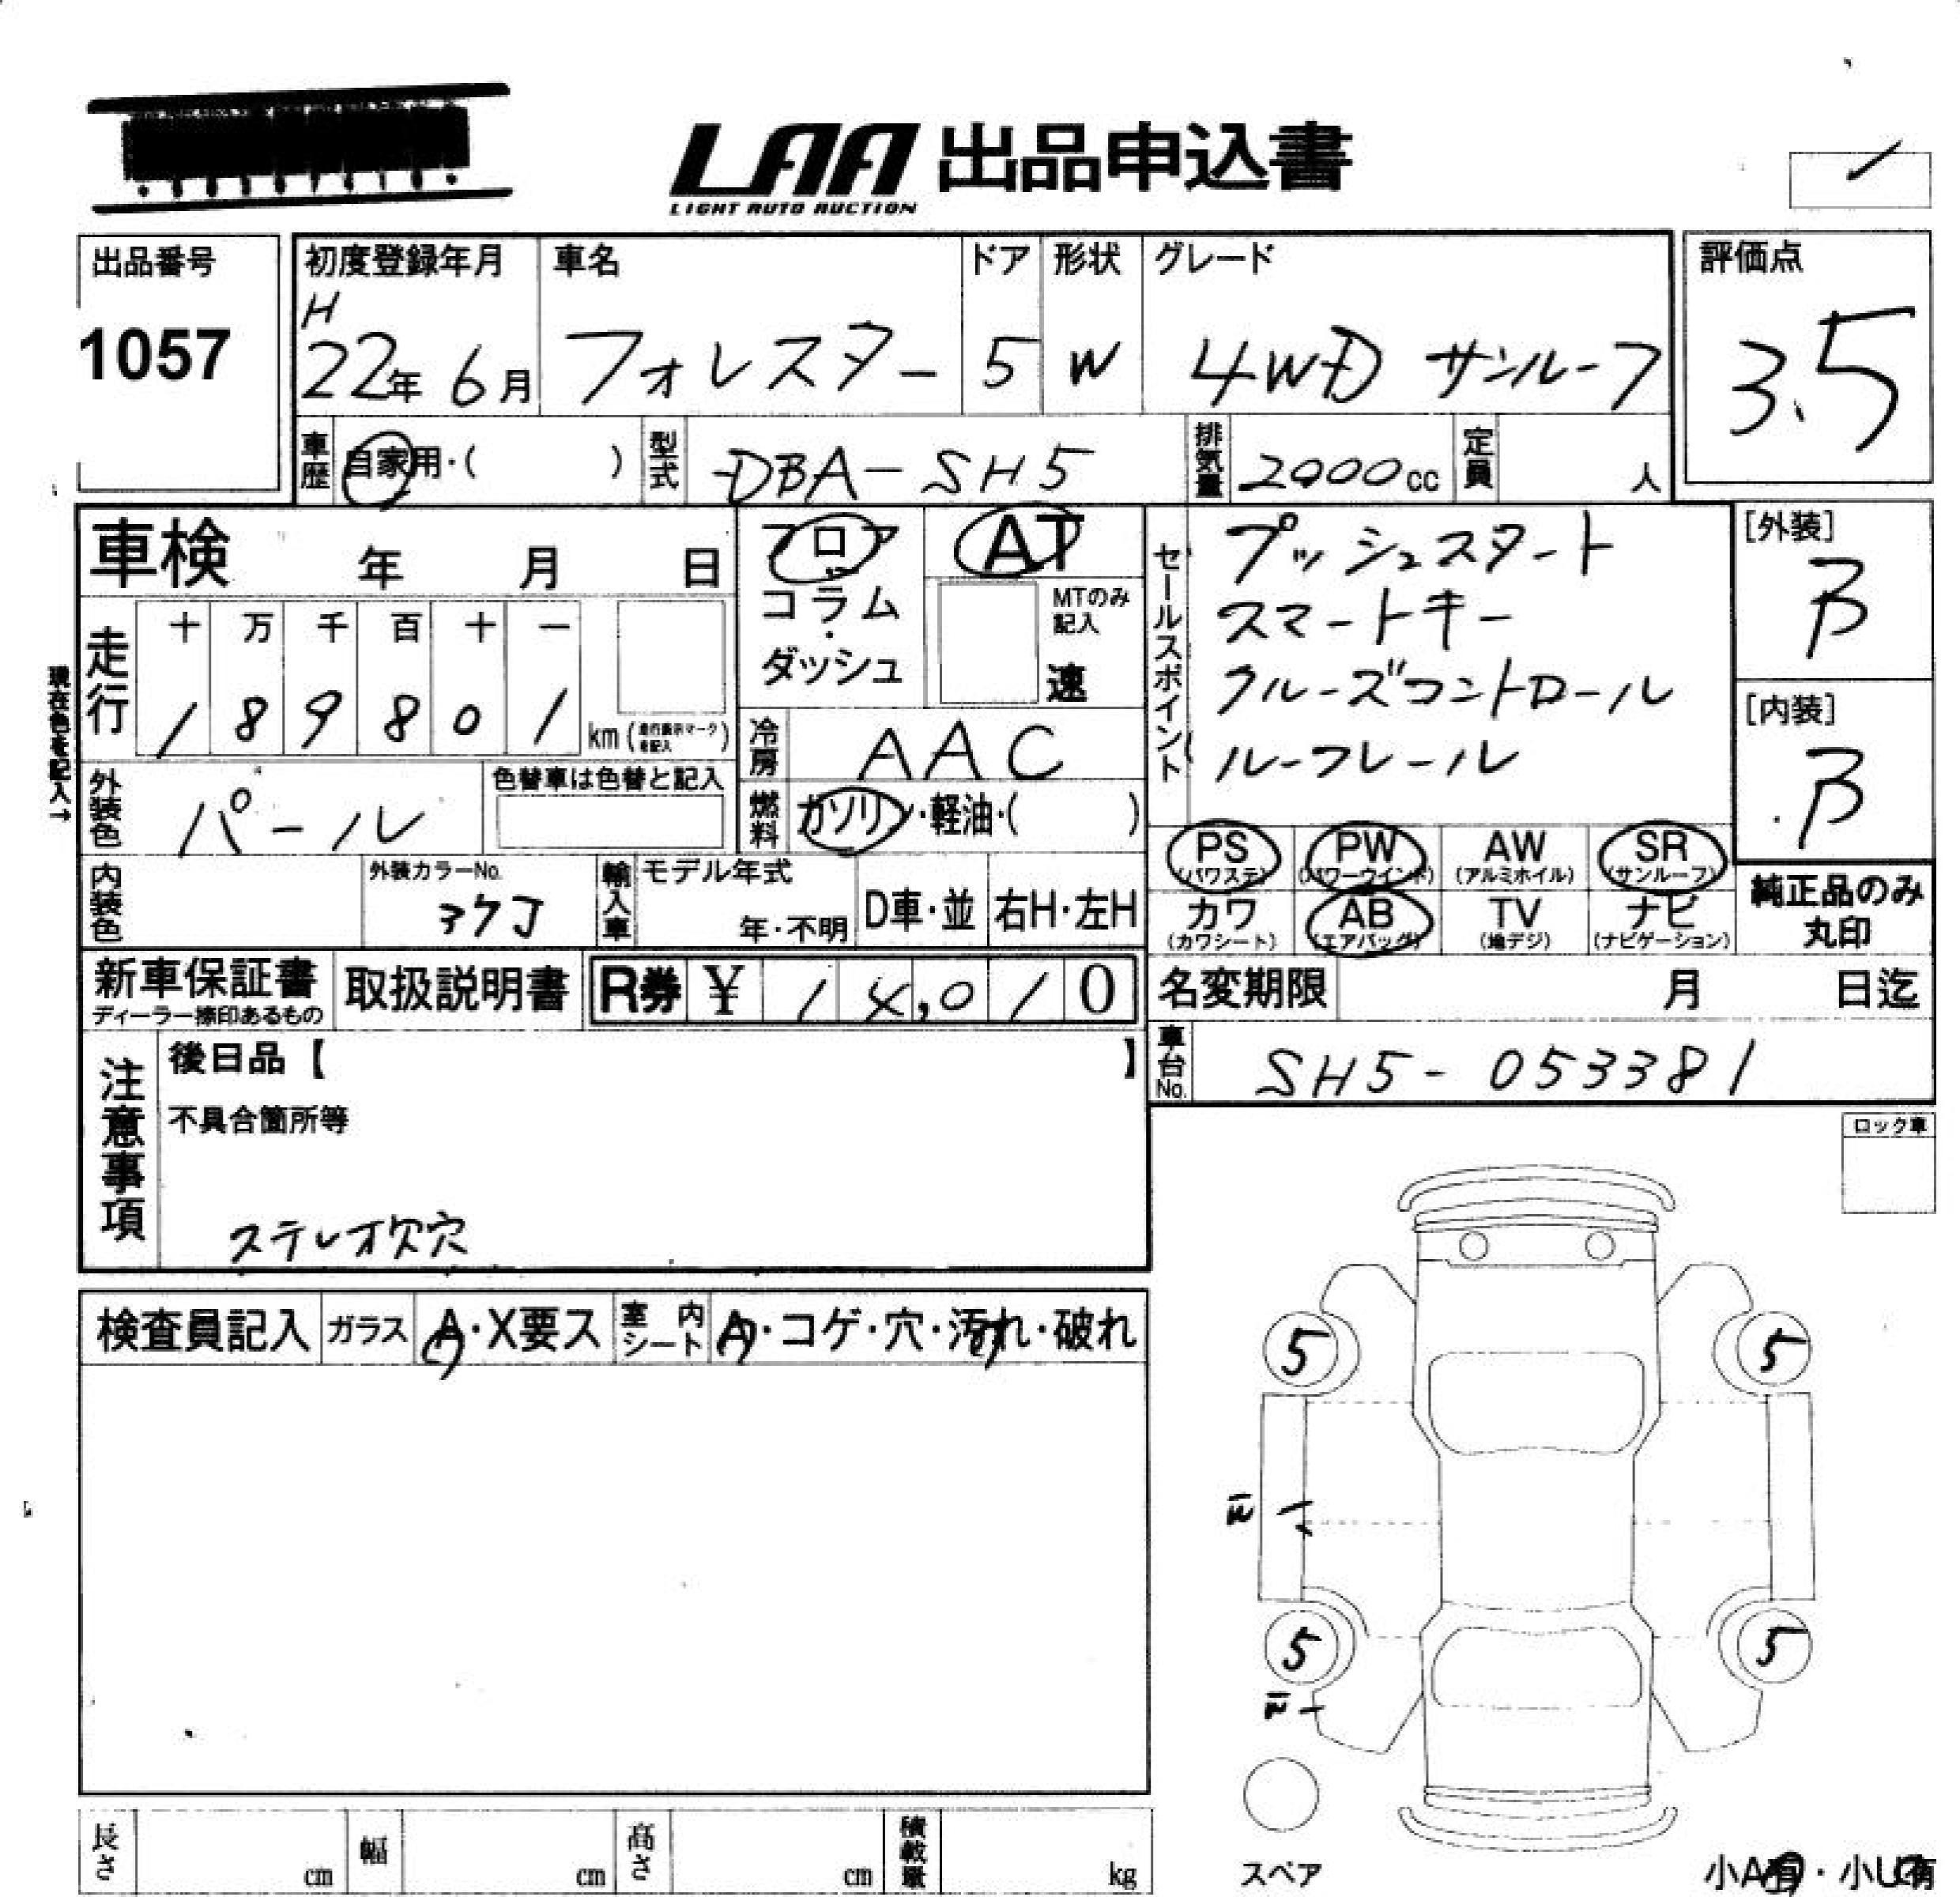 LAA 出品申込書
LIGHT AUTO AUCTION
出品番号
1057
初度登録年月
H
22年 6月
車名
フォレスター
ドア
5
形状
W
グレード
4WD サンルーフ
評価点
3.5
車歴
自家用・( )
型式
DBA-SH5
排気量
2000cc
定員
人
車検 年 月 日
フロア
コラム
・
ダッシュ
AT
MTのみ
記入
速
セールスポイント
プッシュスタート
スマートキー
クルーズコントロール
ルーフレール
[外装]
B
[内装]
B
現在色を記入↑
走行
十 万 千 百 十 一
1 8 9 8 0 1
km (走行表示マークを記入)
冷房
AAC
外装色
パール
色替車は色替と記入
燃料
ガソリン・軽油・( )
PS
(パワステ)
PW
(パワーウインド)
AW
(アルミホイル)
SR
(サンルーフ)
カワ
(カワシート)
AB
(エアバッグ)
TV
(地デジ)
ナビ
(ナビゲーション)
純正品のみ
丸印
内装色
外装カラーNo.
37J
輸入車
モデル年式
年・不明
D車・並
右H・左H
新車保証書
ディーラー捺印あるもの
取扱説明書
R券 ¥ 1 4,0 1 0
名変期限 月 日迄
車台No.
SH5-053381
注意事項
後日品【 】
不具合箇所等
ステレオ欠穴
ロック車
検査員記入
ガラス
A・X要ス
室内シート
A・コゲ・穴・汚れ・破れ
5
5
5
5
スペア
長さ
cm
幅
cm
高さ
cm
積載量
kg
小A有・小U有